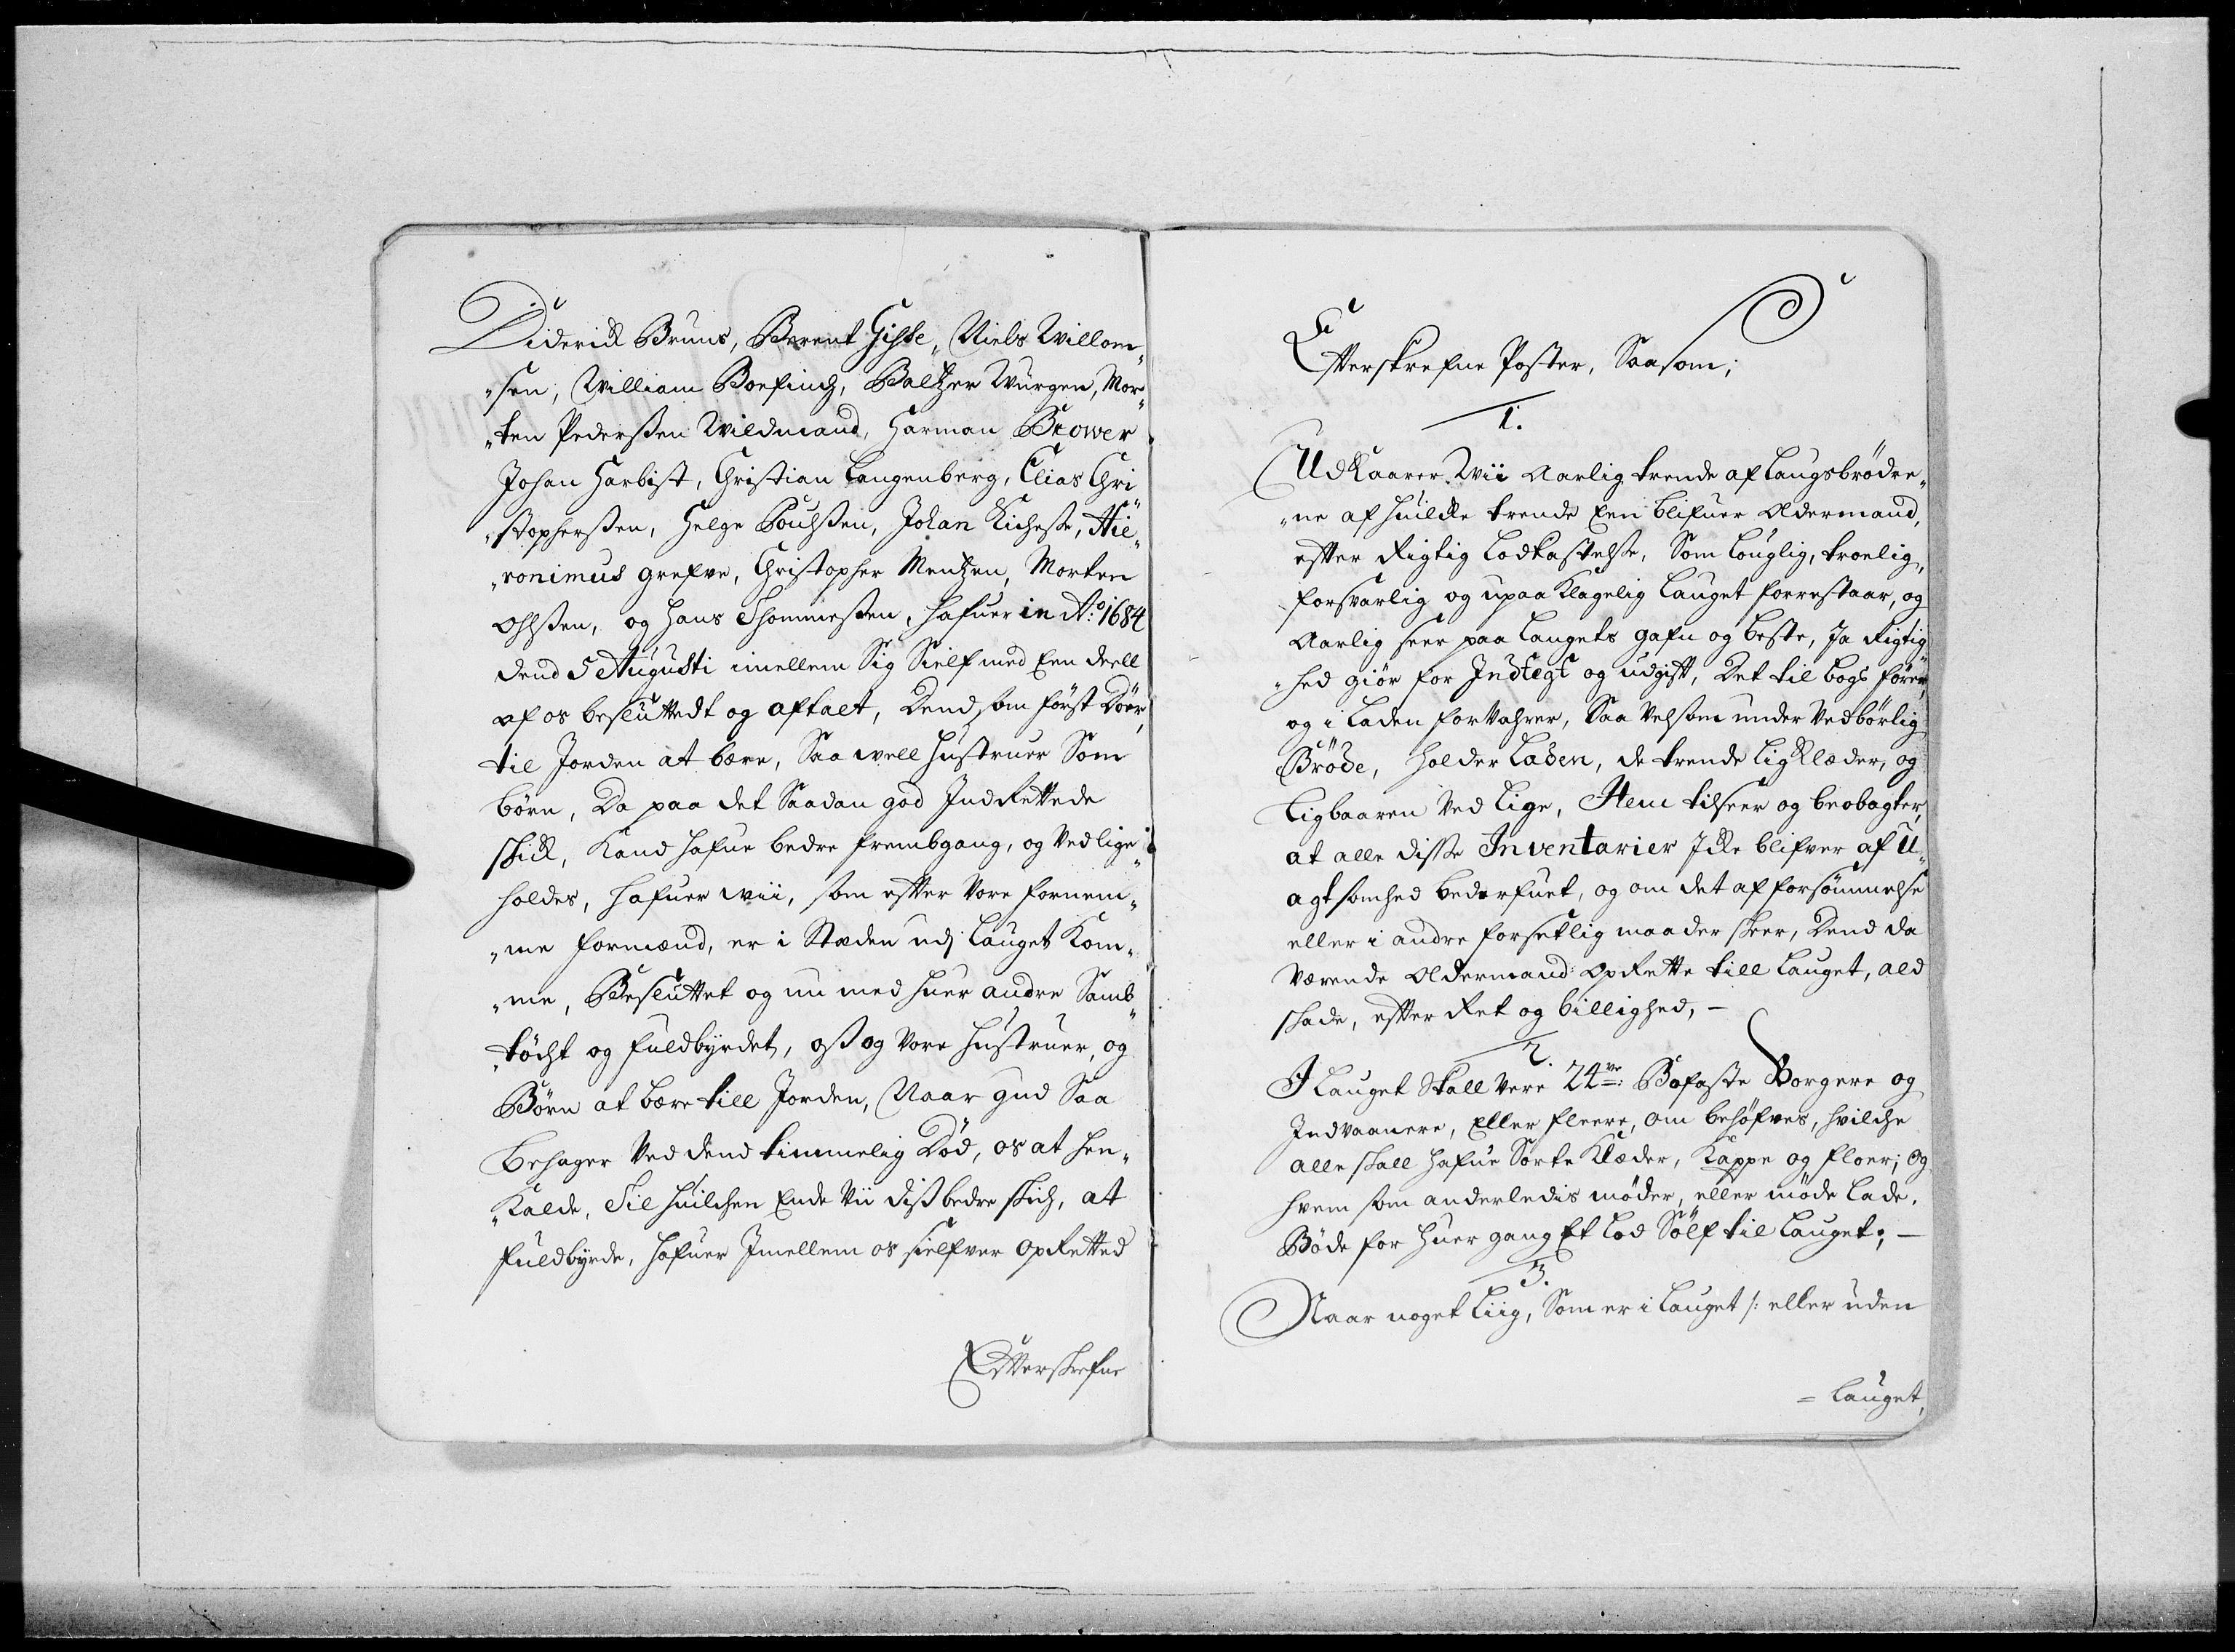 Diderick Bruns, Berent Giesse, Niels Willom„
„sen, William Boefinch, Baltzer Würgen, Mor„
„ten Pederssen Wildmand, Harman Brower
Johan Harbist, Christian Langenberg, Elias Chri„
„stopherssen, Helge Pouhssen, Johan Kichesse, Hie„
„ronimus Grefve, Christopher Mentzen, Morten
Ohlssen, og Hans Thommessen, hafuer in Ao: 1684
dend 5 Augusti imellem Sig Sielf med Een deell
af os besluttedt og aftalt, Dend som først Døer,
til Jorden at bære, Saa well Hustruer Som
børn, Da paa det Saadan god Indrettede
skick, kand hafue bedre frembgang, og Vedlige
holdes, hafuer wii, som efter Vore fornem„
„me formænd, er i Stæden udj Lauget Kom„
„me, Besluttet og nu med huer andre Samb„
„tøcht og fuldbyrdet, oss og Vore Hustruer, og
Børn at bære till Jorden, Naar gud Saa
behager Ved dend timmelig Død, os at hen„
„kalde, Til huilchen Ende Vii diss bedre skich, at
fuldbyrde, hafuer Jmellem os sielfver Opretted
Efterskrefne
Efterskrefne Poster, Saasom;
1.
Udkaarer Wii Aarlig trende af Laugsbrødre„
„ne af huilcke trende Een blifuer Oldermand,
efter Rigtig Lodkastelse, Som Louglig, troelig,
forsvarlig og upaa klagelig Lauget forrestaar, og
Aarlig seer paa Laugets gafn og beste, Ja Rigtig„
„hed giør for Indtegt og udgift, Det til bogs fører,
og i Laden forvahrer, Saa Velsom under Vedbørlig
Brøde, holder Laden, de trende Ligklæder, og
Ligbaaren Ved Lige, Item tilseer og beobagter,
at alle disse Inventarier Icke blifver af U„
agtsomhed bederfuet, og om det af forsømmelse
eller i andre forsetlig maader skeer, Dend da
Værende Oldermand Oprette till Lauget, ald
skade, efter Ret og billighed, –
2.
I Lauget Skall Vere 24ve: Bofaste Borgere og
Indvaanere, Eller fleere, om behøfves, hvilche
alle skall hafue Sorte Klæder, Kappe og floer; Og
hvem som anderledis møder, eller møde lade,
Bøde for huer gang Et Lod Sølf til Lauget; –
3.
Naar noget Liig, Som er i Lauget /: eller uden
= Lauget,